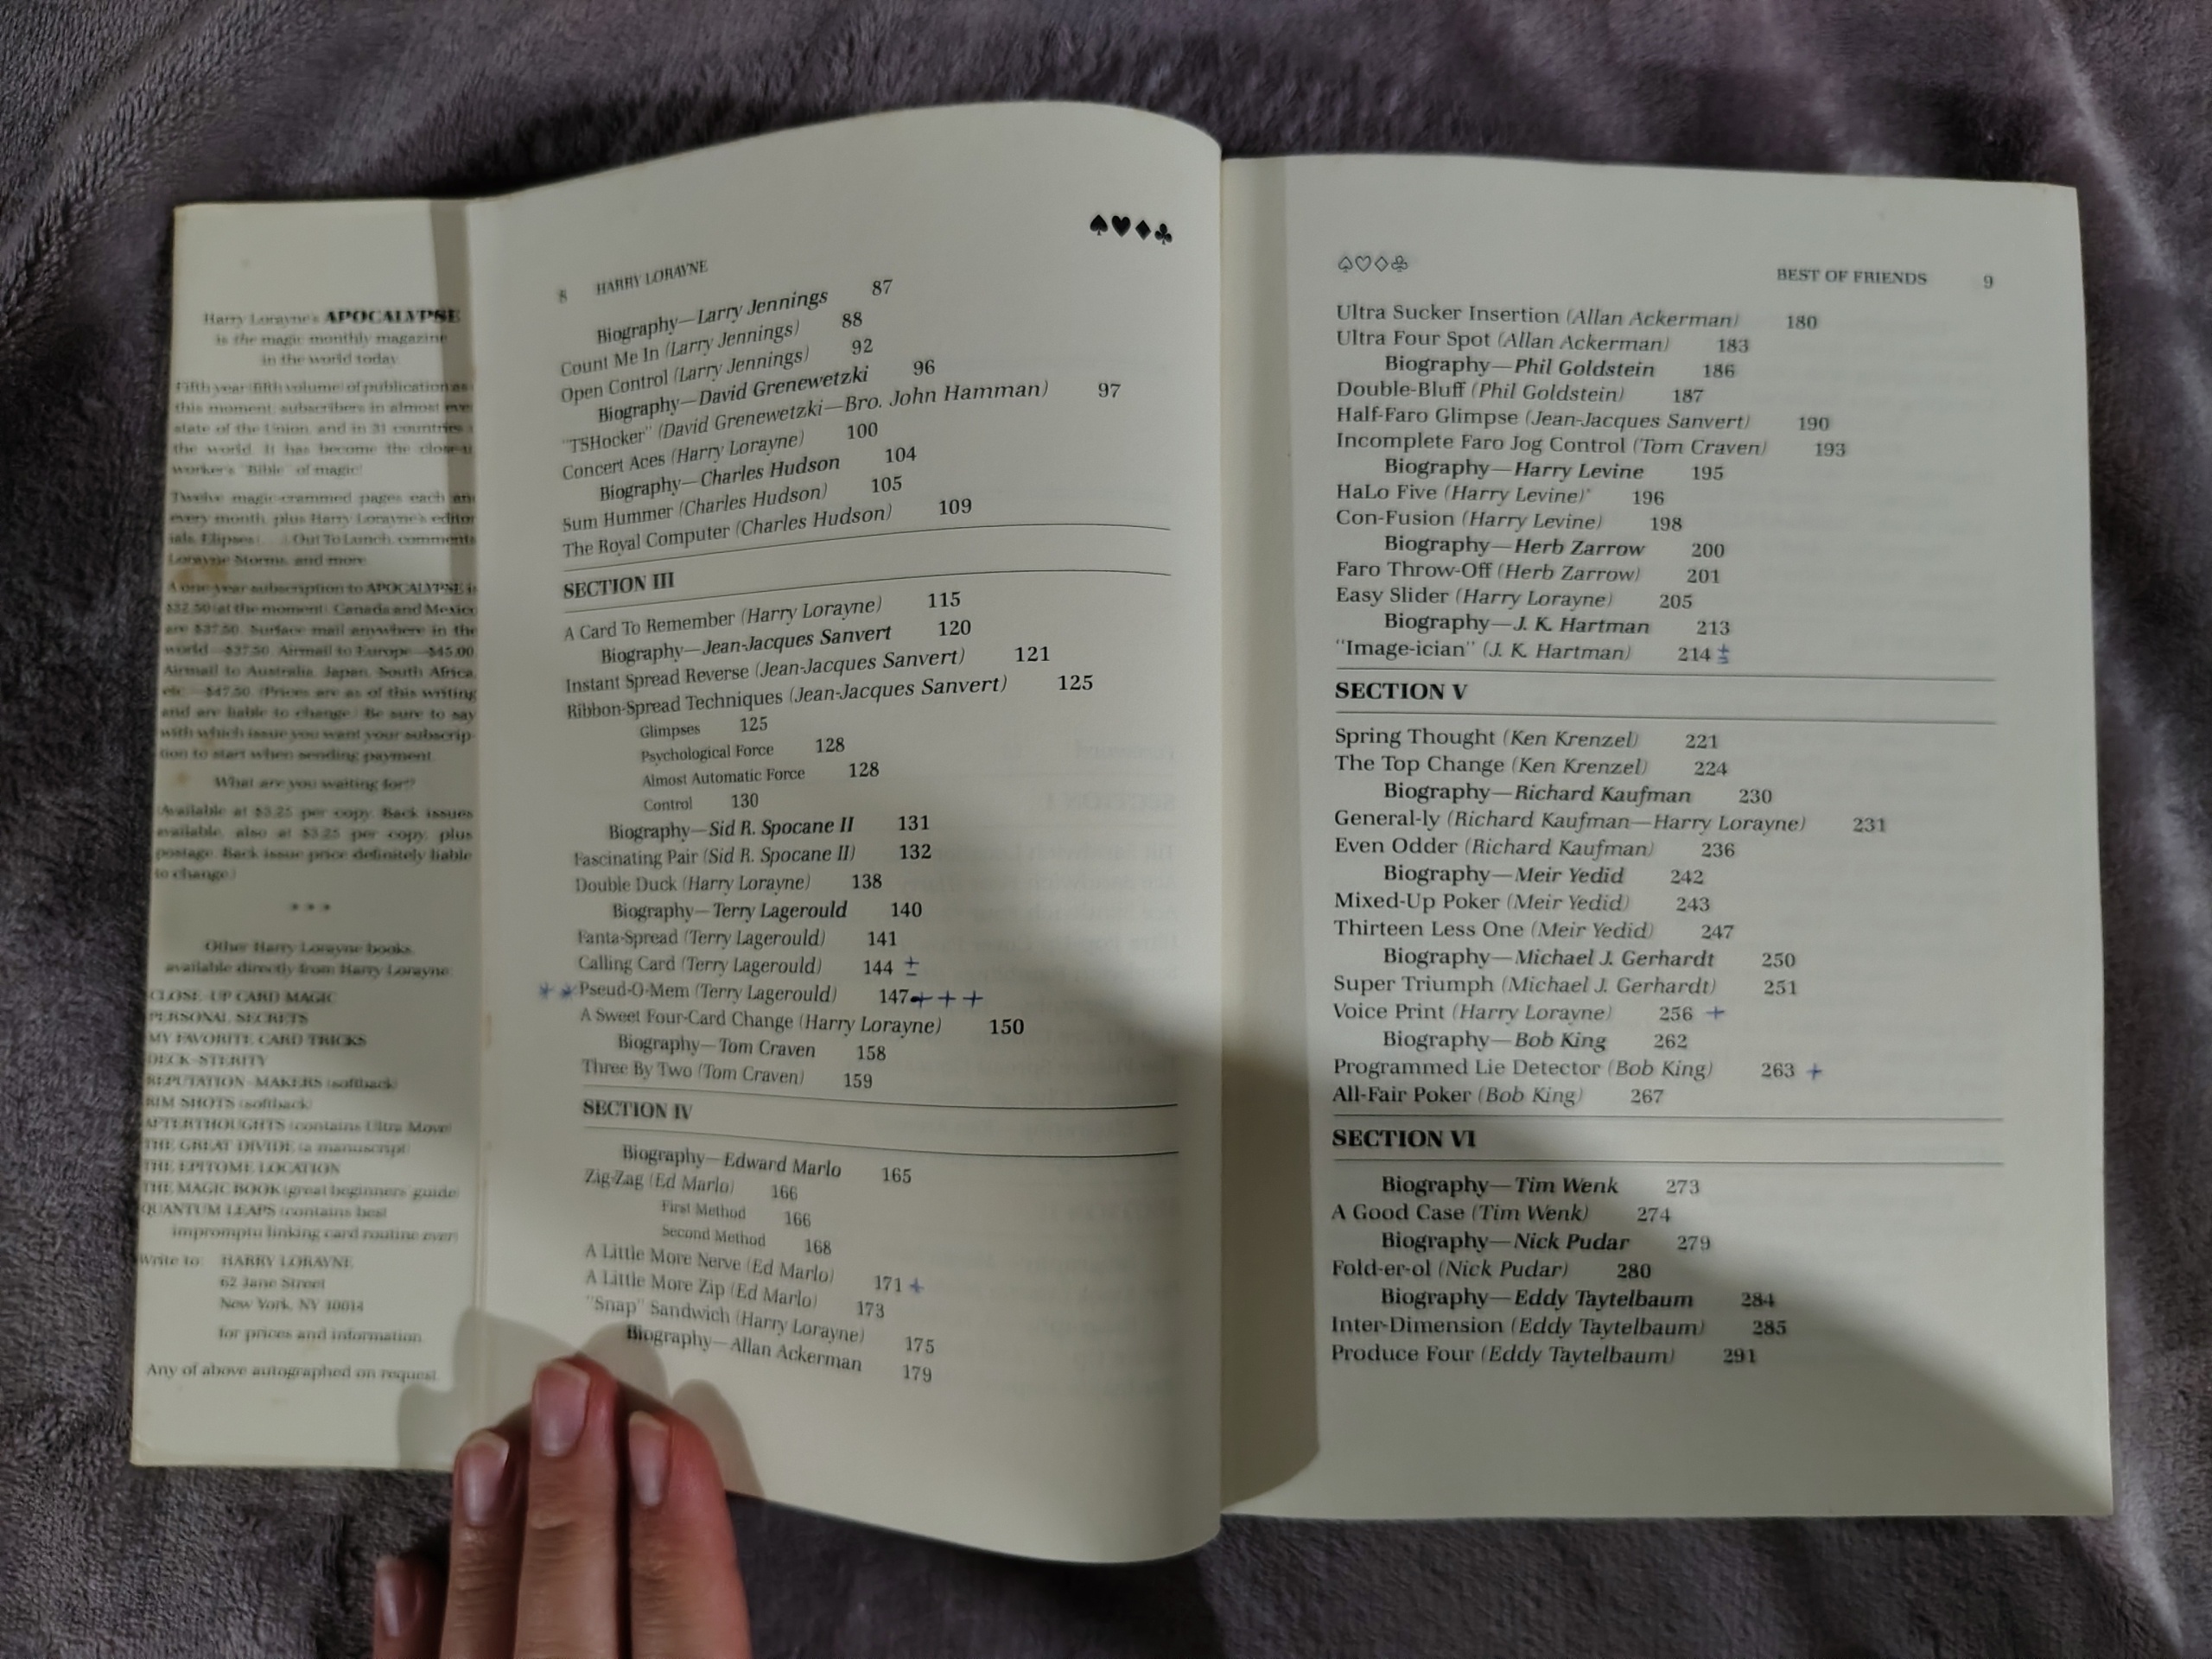 Harry Lorayne's APOCALYPSE
is the magic monthly magazine
in the world today.
Fifth year (fifth volume) of publication as
this moment; subscribers in almost eve
state of the Union, and in 31 countries
the world. It has become the close-u
worker's "Bible" of magic!
Twelve magic-crammed pages each an
every month, plus Harry Lorayne's editor
ials, Elipses( . . . ) Out To Lunch, comments
Lorayne Storms, and more.
A one year subscription to APOCALYPSE is
$32.50 (at the moment). Canada and Mexico
are $37.50. Surface mail anywhere in the
world—$37.50. Airmail to Europe—$45.00.
Airmail to Australia, Japan, South Africa,
etc.—$47.50. (Prices are as of this writing
and are liable to change.) Be sure to say
with which issue you want your subscrip-
tion to start when sending payment.
What are you waiting for!?
(Available at $3.25 per copy. Back issues
available, also at $3.25 per copy, plus
postage. Back issue price definitely liable
to change.)
* * *
Other Harry Lorayne books
available directly from Harry Lorayne:
CLOSE-UP CARD MAGIC
PERSONAL SECRETS
MY FAVORITE CARD TRICKS
DECK-STERITY
REPUTATION-MAKERS (softback)
RIM SHOTS (softback)
AFTERTHOUGHTS (contains Ultra Move)
THE GREAT DIVIDE (a manuscript)
THE EPITOME LOCATION
THE MAGIC BOOK (great beginners' guide)
QUANTUM LEAPS (contains best
impromptu linking card routine ever)
Write to: HARRY LORAYNE
62 Jane Street
New York, NY 10014
for prices and information
Any of above autographed on request.
♠♥♦♣
8 HARRY LORAYNE
Biography—Larry Jennings 87
Count Me In (Larry Jennings) 88
Open Control (Larry Jennings) 92
Biography—David Grenewetzki 96
"TSHocker" (David Grenewetzki—Bro. John Hamman) 97
Concert Aces (Harry Lorayne) 100
Biography—Charles Hudson 104
Sum Hummer (Charles Hudson) 105
The Royal Computer (Charles Hudson) 109
SECTION III
A Card To Remember (Harry Lorayne) 115
Biography—Jean-Jacques Sanvert 120
Instant Spread Reverse (Jean-Jacques Sanvert) 121
Ribbon-Spread Techniques (Jean-Jacques Sanvert) 125
Glimpses 125
Psychological Force 128
Almost Automatic Force 128
Control 130
Biography—Sid R. Spocane II 131
Fascinating Pair (Sid R. Spocane II) 132
Double Duck (Harry Lorayne) 138
Biography—Terry Lagerould 140
Fanta-Spread (Terry Lagerould) 141
Calling Card (Terry Lagerould) 144 ±
**Pseud-O-Mem (Terry Lagerould) 147+++
A Sweet Four-Card Change (Harry Lorayne) 150
Biography—Tom Craven 158
Three By Two (Tom Craven) 159
SECTION IV
Biography—Edward Marlo 165
Zig-Zag (Ed Marlo) 166
First Method 166
Second Method 168
A Little More Nerve (Ed Marlo) 171 +
A Little More Zip (Ed Marlo) 173
"Snap" Sandwich (Harry Lorayne) 175
Biography—Allan Ackerman 179
♤♡♢♧
BEST OF FRIENDS 9
Ultra Sucker Insertion (Allan Ackerman) 180
Ultra Four Spot (Allan Ackerman) 183
Biography—Phil Goldstein 186
Double-Bluff (Phil Goldstein) 187
Half-Faro Glimpse (Jean-Jacques Sanvert) 190
Incomplete Faro Jog Control (Tom Craven) 193
Biography—Harry Levine 195
HaLo Five (Harry Levine) 196
Con-Fusion (Harry Levine) 198
Biography—Herb Zarrow 200
Faro Throw-Off (Herb Zarrow) 201
Easy Slider (Harry Lorayne) 205
Biography—J. K. Hartman 213
"Image-ician" (J. K. Hartman) 214 ±
SECTION V
Spring Thought (Ken Krenzel) 221
The Top Change (Ken Krenzel) 224
Biography—Richard Kaufman 230
General-ly (Richard Kaufman—Harry Lorayne) 231
Even Odder (Richard Kaufman) 236
Biography—Meir Yedid 242
Mixed-Up Poker (Meir Yedid) 243
Thirteen Less One (Meir Yedid) 247
Biography—Michael J. Gerhardt 250
Super Triumph (Michael J. Gerhardt) 251
Voice Print (Harry Lorayne) 256 +
Biography—Bob King 262
Programmed Lie Detector (Bob King) 263 +
All-Fair Poker (Bob King) 267
SECTION VI
Biography—Tim Wenk 273
A Good Case (Tim Wenk) 274
Biography—Nick Pudar 279
Fold-er-ol (Nick Pudar) 280
Biography—Eddy Taytelbaum 284
Inter-Dimension (Eddy Taytelbaum) 285
Produce Four (Eddy Taytelbaum) 291